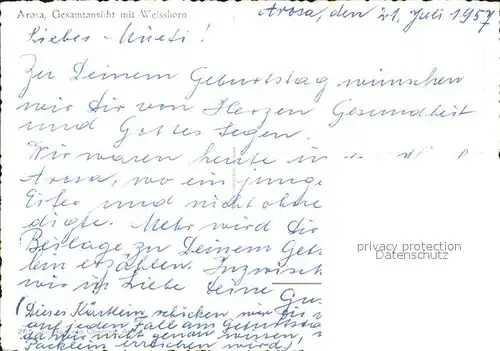 Arosa, Gesamtansicht mit Weisshorn
Arosa, den 21. Juli 1957
Liebes Müeti!
Zu Deinem Geburtstag wünschen
wir Dir von Herzen Gesundheit
und Gottes Segen.
Wir waren heute in
Arosa, wo ein junge
Eifer und nicht ohne
digte. Mehr wird Dir
Beilage zu Deinem Geb
lein erzählen. Inzwisch
wir in Liebe Deine
(Dieses Kärtlein schicken wir Dir
auf jeden Fall am Geburtsta
da wir nicht genau wissen,
Päcklein erreichen wird)
privacy protection
Datenschutz